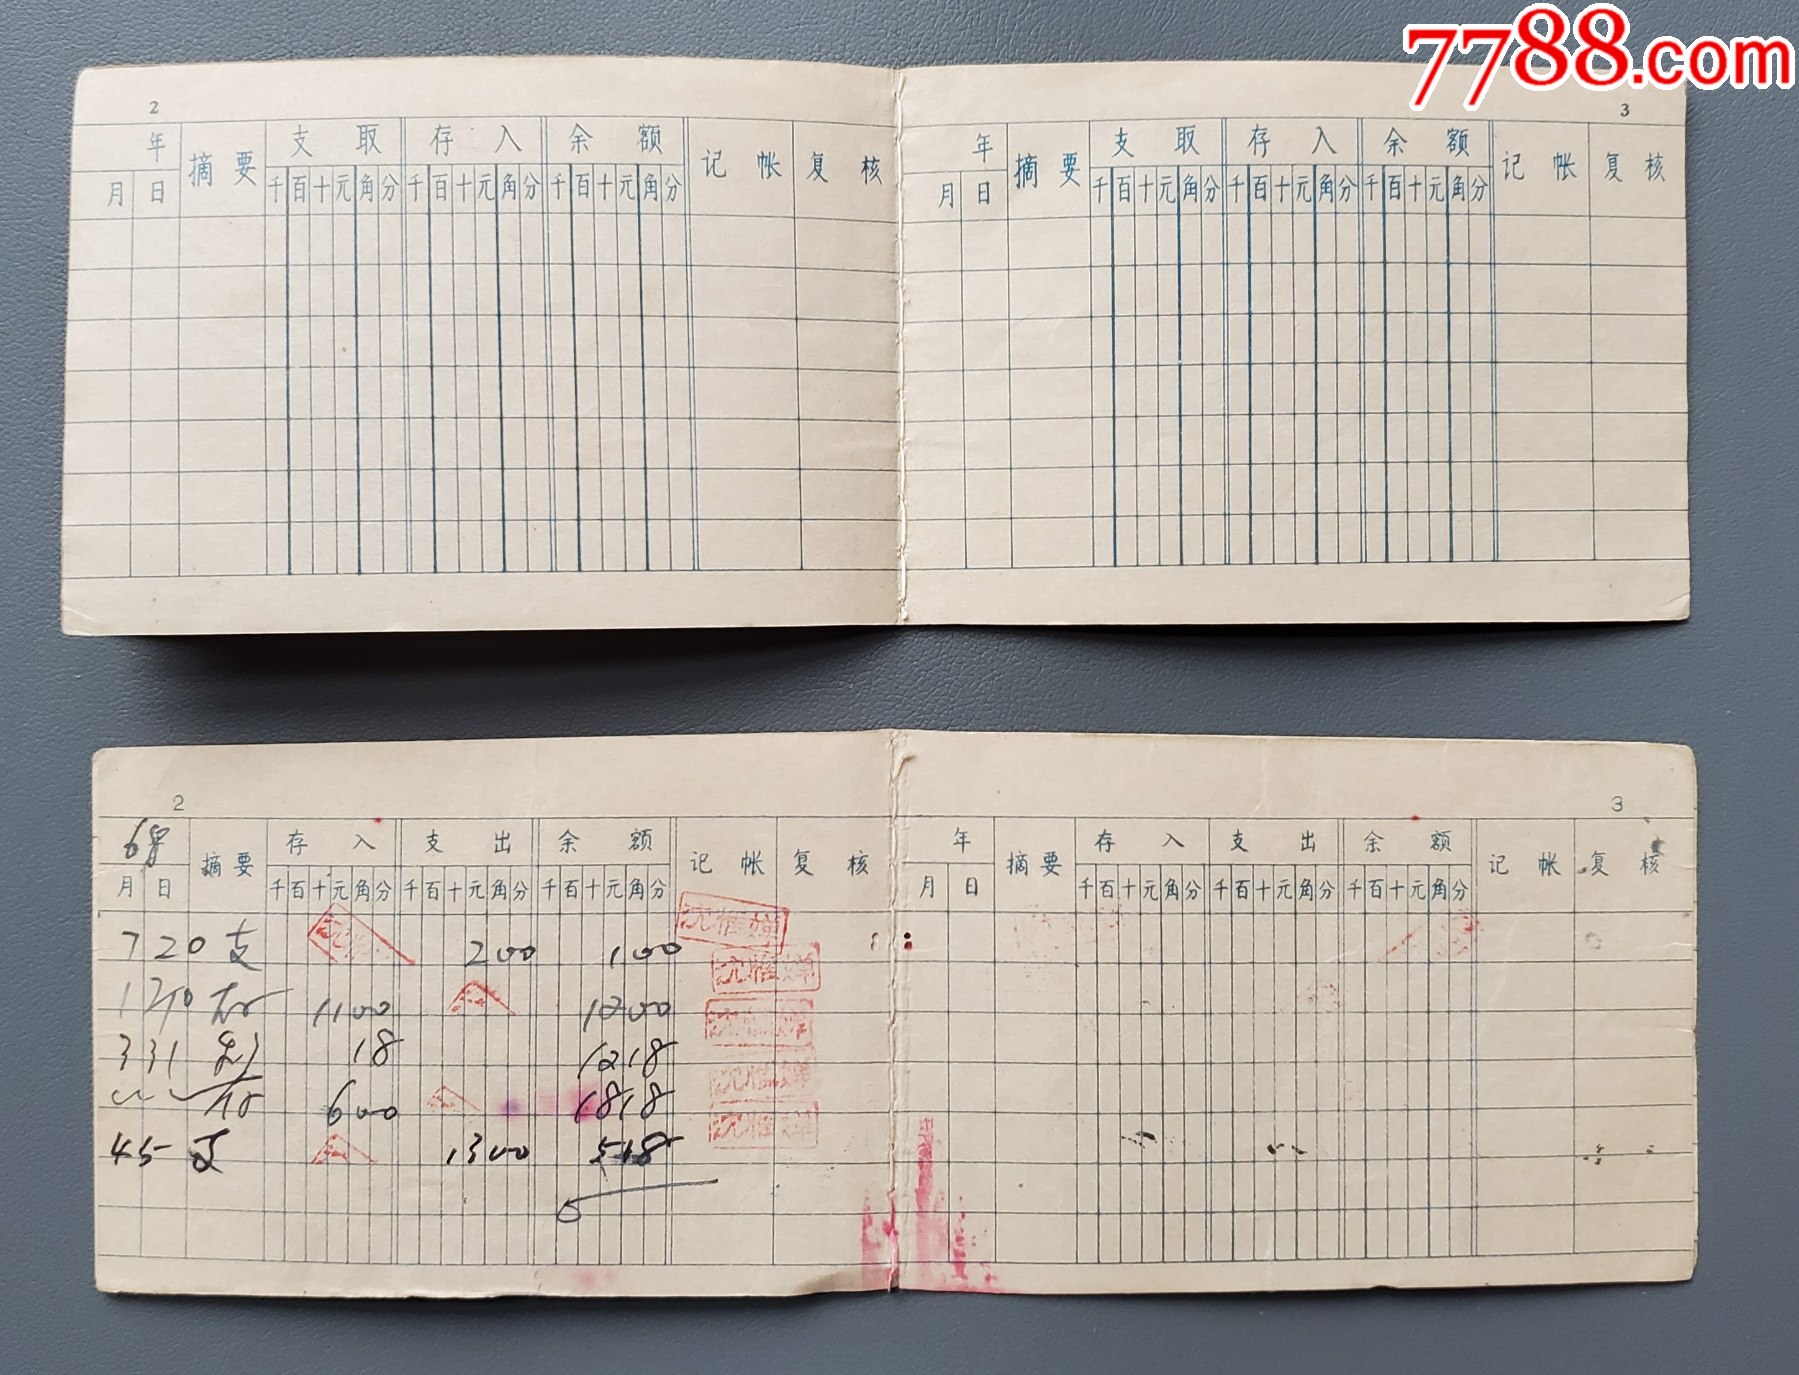 7788.com
2 3
年 摘要 支取 存入 余额 记帐 复核 年 摘要 支取 存入 余额 记帐 复核
月 日 千百十元角分 千百十元角分 千百十元角分 月 日 千百十元角分 千百十元角分 千百十元角分
2 3
年 摘要 存入 支出 余额 记帐 复核 年 摘要 存入 支出 余额 记帐 复核
月 日 千百十元角分 千百十元角分 千百十元角分 月 日 千百十元角分 千百十元角分 千百十元角分
7 20 支 200 100
1100 1200
3 31 18 1218
600 1818
4 5 支 1300 518